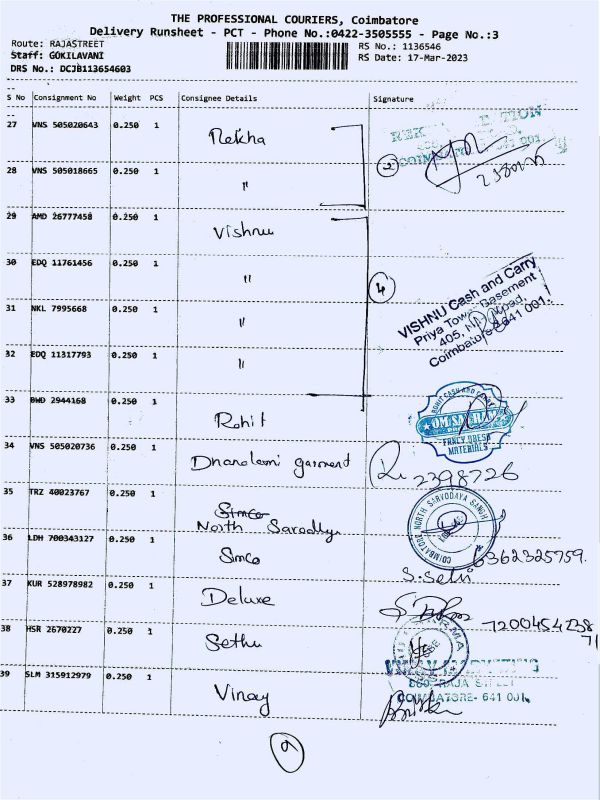 THE PROFESSIONAL COURIERS, Coimbatore
Delivery Runsheet - PCT - Phone No.:0422-3505555 - Page No.:3
Route: RAJASTREET
Staff: GOKILAVANI
DRS No.: DCJB113654603
RS No.: 1136546
RS Date: 17-Mar-2023
S No Consignment No Weight PCS Consignee Details Signature
27 VNS 505020643 0.250 1 Rekha
28 VNS 505018665 0.250 1 "
2
COIMBATORE
29 AMD 26777458 0.250 1 Vishnu
30 EDQ 11761456 0.250 1 "
31 NKL 7995668 0.250 1 "
32 EDQ 11317793 0.250 1 "
4
VISHNU Cash and Carry
Priya Tower Basement
405,
Coimbatore-641 001.
33 BWD 2944168 0.250 1 Rohit
ROHIT CASH AND CARRY
FANCY DRESS
MATERIALS
34 VNS 505020736 0.250 1 garment
2398726
35 TRZ 40023767 0.250 1 Simco
North
COIMBATORE NORTH SARVODAYA SANGH
36 LDH 700343127 0.250 1 Simco
6362325759.
S. Selvi
37 KUR 528978982 0.250 1 Deluxe
38 HSR 2670227 0.250 1 Sethu
39 SLM 315912979 0.250 1 Vinay
COIMBATORE- 641 001
9